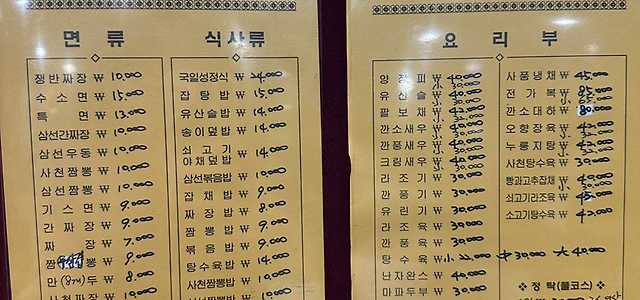 면류
쟁반짜장 ₩ 10.000
수소면 ₩ 15.000
특면 ₩ 13.000
삼선간짜장 ₩ 10.000
삼선우동 ₩ 10.000
사천짬뽕 ₩ 10.000
삼선짬뽕 ₩ 10.000
기스면 ₩ 9.000
간짜장 ₩ 9.000
짜장 ₩ 7.000
짬 ₩ 9.000
만(8개)두 ₩ 8.000
사천짜장 ₩ 10.000
식사류
국일성정식 ₩ 24.000
잡탕밥 ₩ 15.000
유산슬밥 ₩ 14.000
송이덮밥 ₩ 14.000
쇠고기
야채덮밥 ₩ 14.000
삼선볶음밥 ₩ 10.000
잡채밥 ₩ 9.000
짜장밥 ₩ 8.000
짬뽕밥 ₩ 9.000
볶음밥 ₩ 9.000
탕수육밥 ₩ 14.000
사천짬뽕밥 ₩ 10.000
삼선짬뽕밥 ₩
요리부
양장피 ₩ 40.000
小 30.000
유산슬 ₩ 40.000
小 30.000
팔보채 ₩ 40.000
小 30.000
깐소새우 ₩
깐풍새우 ₩
크림새우 ₩ 40.000
小 30.000
라조기 ₩ 30.000
깐풍기 ₩ 30.000
유린기 ₩ 30.000
라조육 ₩ 30.000
깐풍육 ₩ 30.000
탕수육 小 22.000 中 30.000 大 40.000
난자완스 ₩ 40.000
마파두부 ₩ 30.000
사품냉채 ₩ 45.000
전가복 ₩ 85.000
小 65.000
깐소대하 ₩ 80.000
오향장육 ₩
누룽지탕 ₩
사천탕수육 ₩ 30.000
빵과고추잡채 ₩ 40.000
小 30.000
쇠고기라조육 ₩ 45.000
소고기탕수육 ₩ 42.000
◇ 정탁(풀코스) ◇